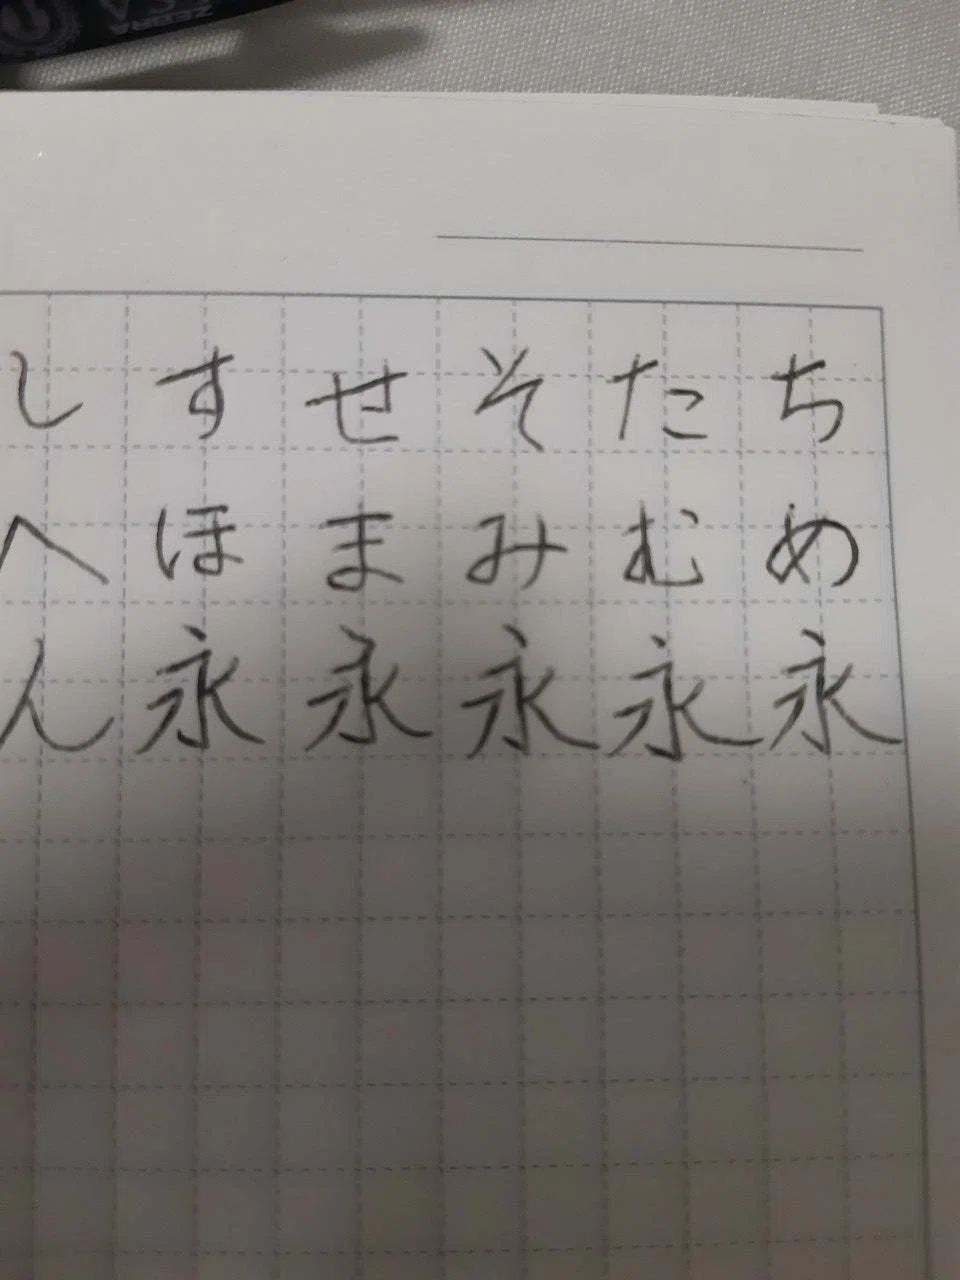 ZEBRA
しすせそたち
へほまみむめ
ん永永永永永